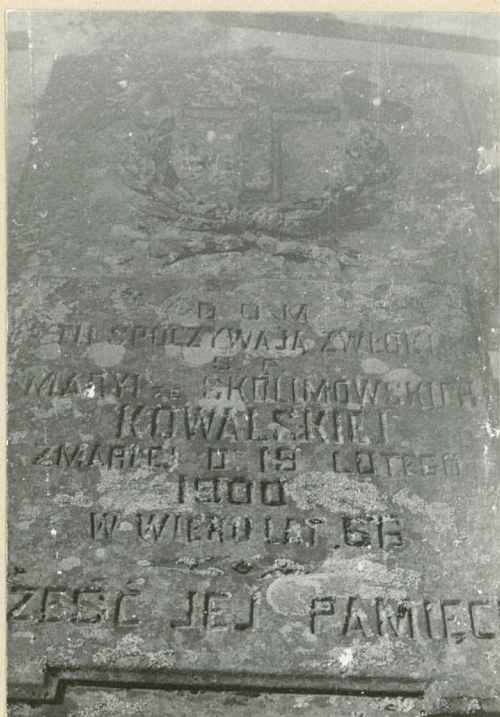 D O M
TU SPOCZYWAJĄ ZWŁOKI
Ś P
MARYI ZE SKOLIMOWSKICH
KOWALSKIEJ
ZMARŁEJ D 19 LUTEGO
1900
W WIEKU LAT 66
CZEŚĆ JEJ PAMIĘCI